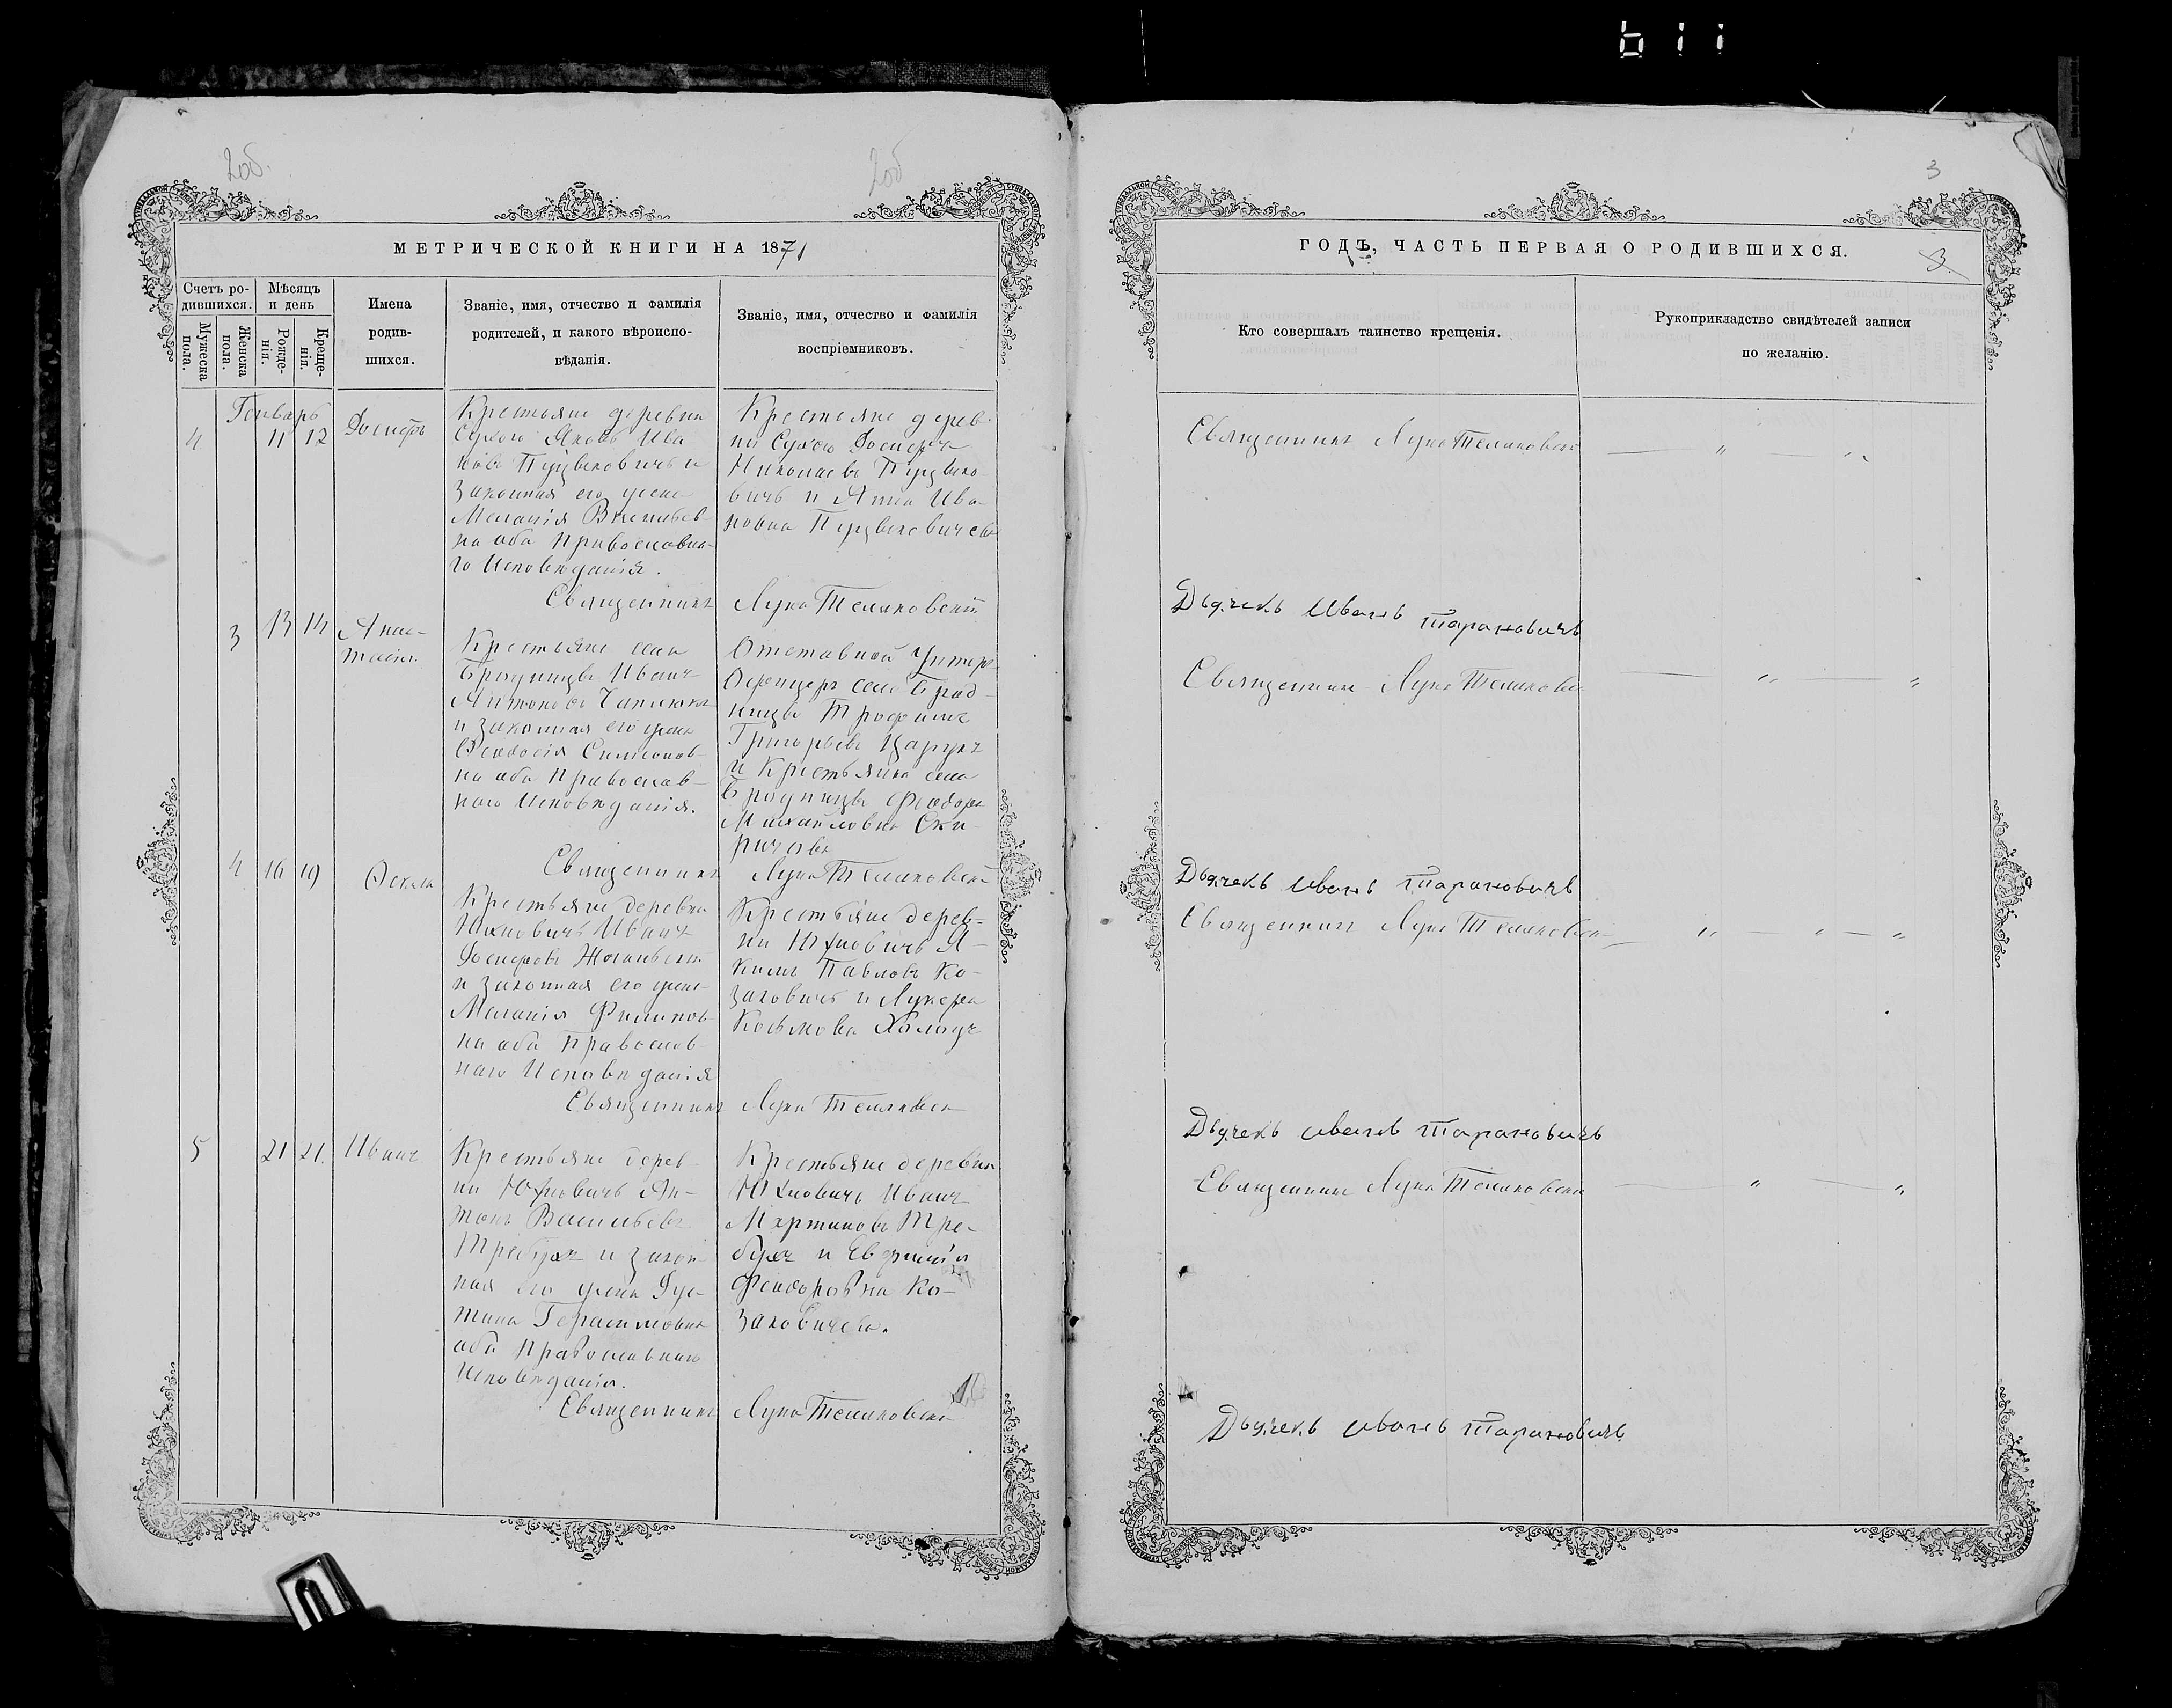 611
2об.
2об
МЕТРИЧЕСКОЙ КНИГИ НА 1871
Счетъ ро-
дившихся.
Мужеска
пола.
Женска
пола.
Мѣсяцъ
и день
Рожде-
нія.
Креще-
нія.
Имена
родив-
шихся.
Званіе, имя, отчество и фамилія
родителей, и какого вѣроиспо-
вѣданія.
Званіе, имя, отчество и фамилія
воспріемниковъ.
Генварь
4 11 12
Крестьяне деревни
Сухой Яковъ Ива
новъ
законная его жена
Меланія Васильев-
на оба православна-
го Исповѣданія.
Крестьяне дерев-
ни Сухой
Николаевъ
вичъ и Анна Ива-
новна
Священникъ Лука
3 13 14 Анас-
тасія
Крестьяне села
Бродницы Иванъ
Антоновъ
и законная его жена
Феодосія Симеонов-
на оба православ-
наго Исповѣданія.
Отставной Унтеръ
Офицеръ села Брод-
ницы Трофимъ
Григорьевъ Царукъ
и Крестьянка села
Бродницы Феодора
Михайловна
Священникъ Лука
4 16 19 Фекла
Крестьяне деревни
Юхновичъ Иванъ
и законная его жена
Меланія Филипов-
на оба Православ-
наго Исповѣданія
Крестьяне дерев-
ни Юхновичъ Я-
кимъ Павловъ Ко-
заковичъ и Лукерья
Косьмова
Священникъ Лука
5 21 21. Иванъ
Крестьяне дерев-
ни Юхновичъ Ан-
тонъ Васильевъ
Требухъ и закон-
ная его жена Іус-
тина Герасимовна
оба Православнаго
Исповѣданія.
Крестьяне деревни
Юхновичъ Иванъ
Мартиновъ Тре-
бухъ и Евфимія
Феодоровна Ко-
заковичева.
Священникъ Лука
3
ГОДЪ, ЧАСТЬ ПЕРВАЯ О РОДИВШИХСЯ.
3.
Кто совершалъ таинство крещенія.
Рукоприкладство свидѣтелей записи
по желанію.
Священникъ Лука
Дьячекъ Иванъ Тарановичъ
Священникъ Лука
Дьячекъ Иванъ Тарановичъ
Священникъ Лука
Дьячекъ Иванъ Тарановичъ
Священникъ Лука
Дьячекъ Иванъ Тарановичъ